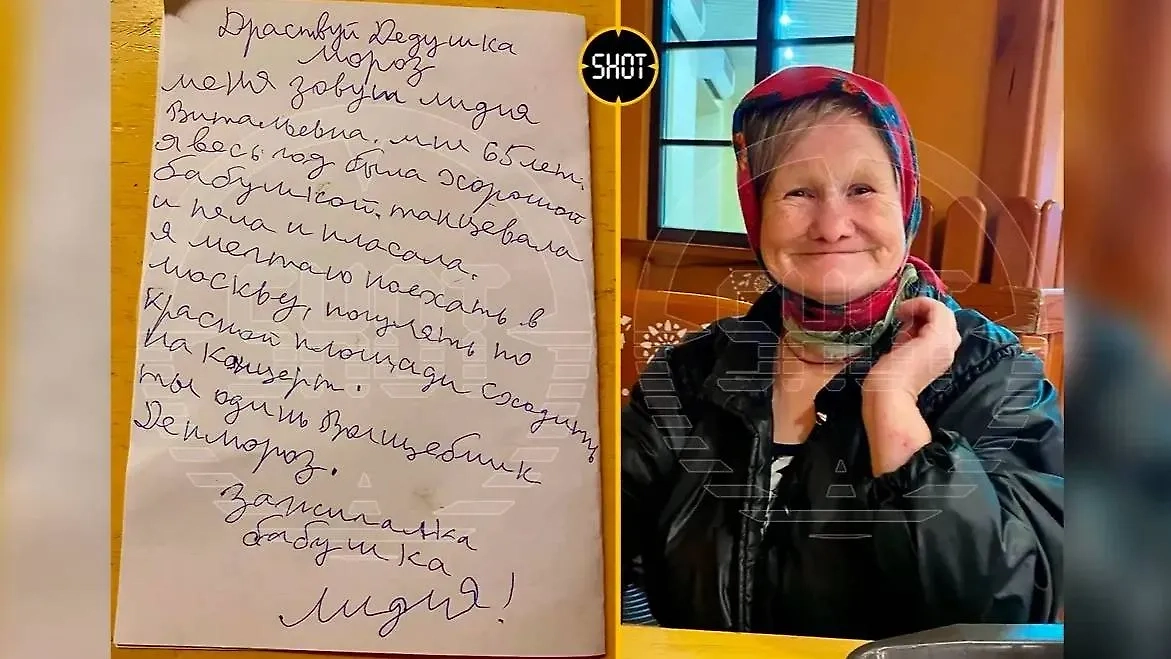 Драствуй Дедушка
Мороз
меня зовут лидия
Витальевна. мне 65 лет.
я весь год была хорошой
бабушкой. танцевала
и пела и плясала.
я мечтаю поехать в
москву, погулять по
красной площади сходить
на концерт.
ты одинВолщебник
Денмороз.
Зажигалка
бабушка
лидия!
SHOT